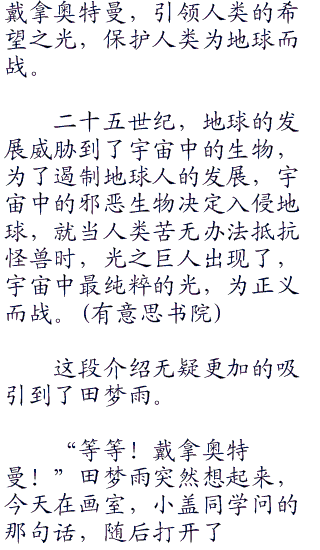 戴拿奥特曼，引领人类的希
望之光，保护人类为地球而
战。
二十五世纪，地球的发
展威胁到了宇宙中的生物，
为了遏制地球人的发展，宇
宙中的邪恶生物决定入侵地
球，就当人类苦无办法抵抗
怪兽时，光之巨人出现了，
宇宙中最纯粹的光，为正义
而战。(有意思书院)
这段介绍无疑更加的吸
引到了田梦雨。
“等等！戴拿奥特
曼！”田梦雨突然想起来，
今天在画室，小盖同学问的
那句话，随后打开了